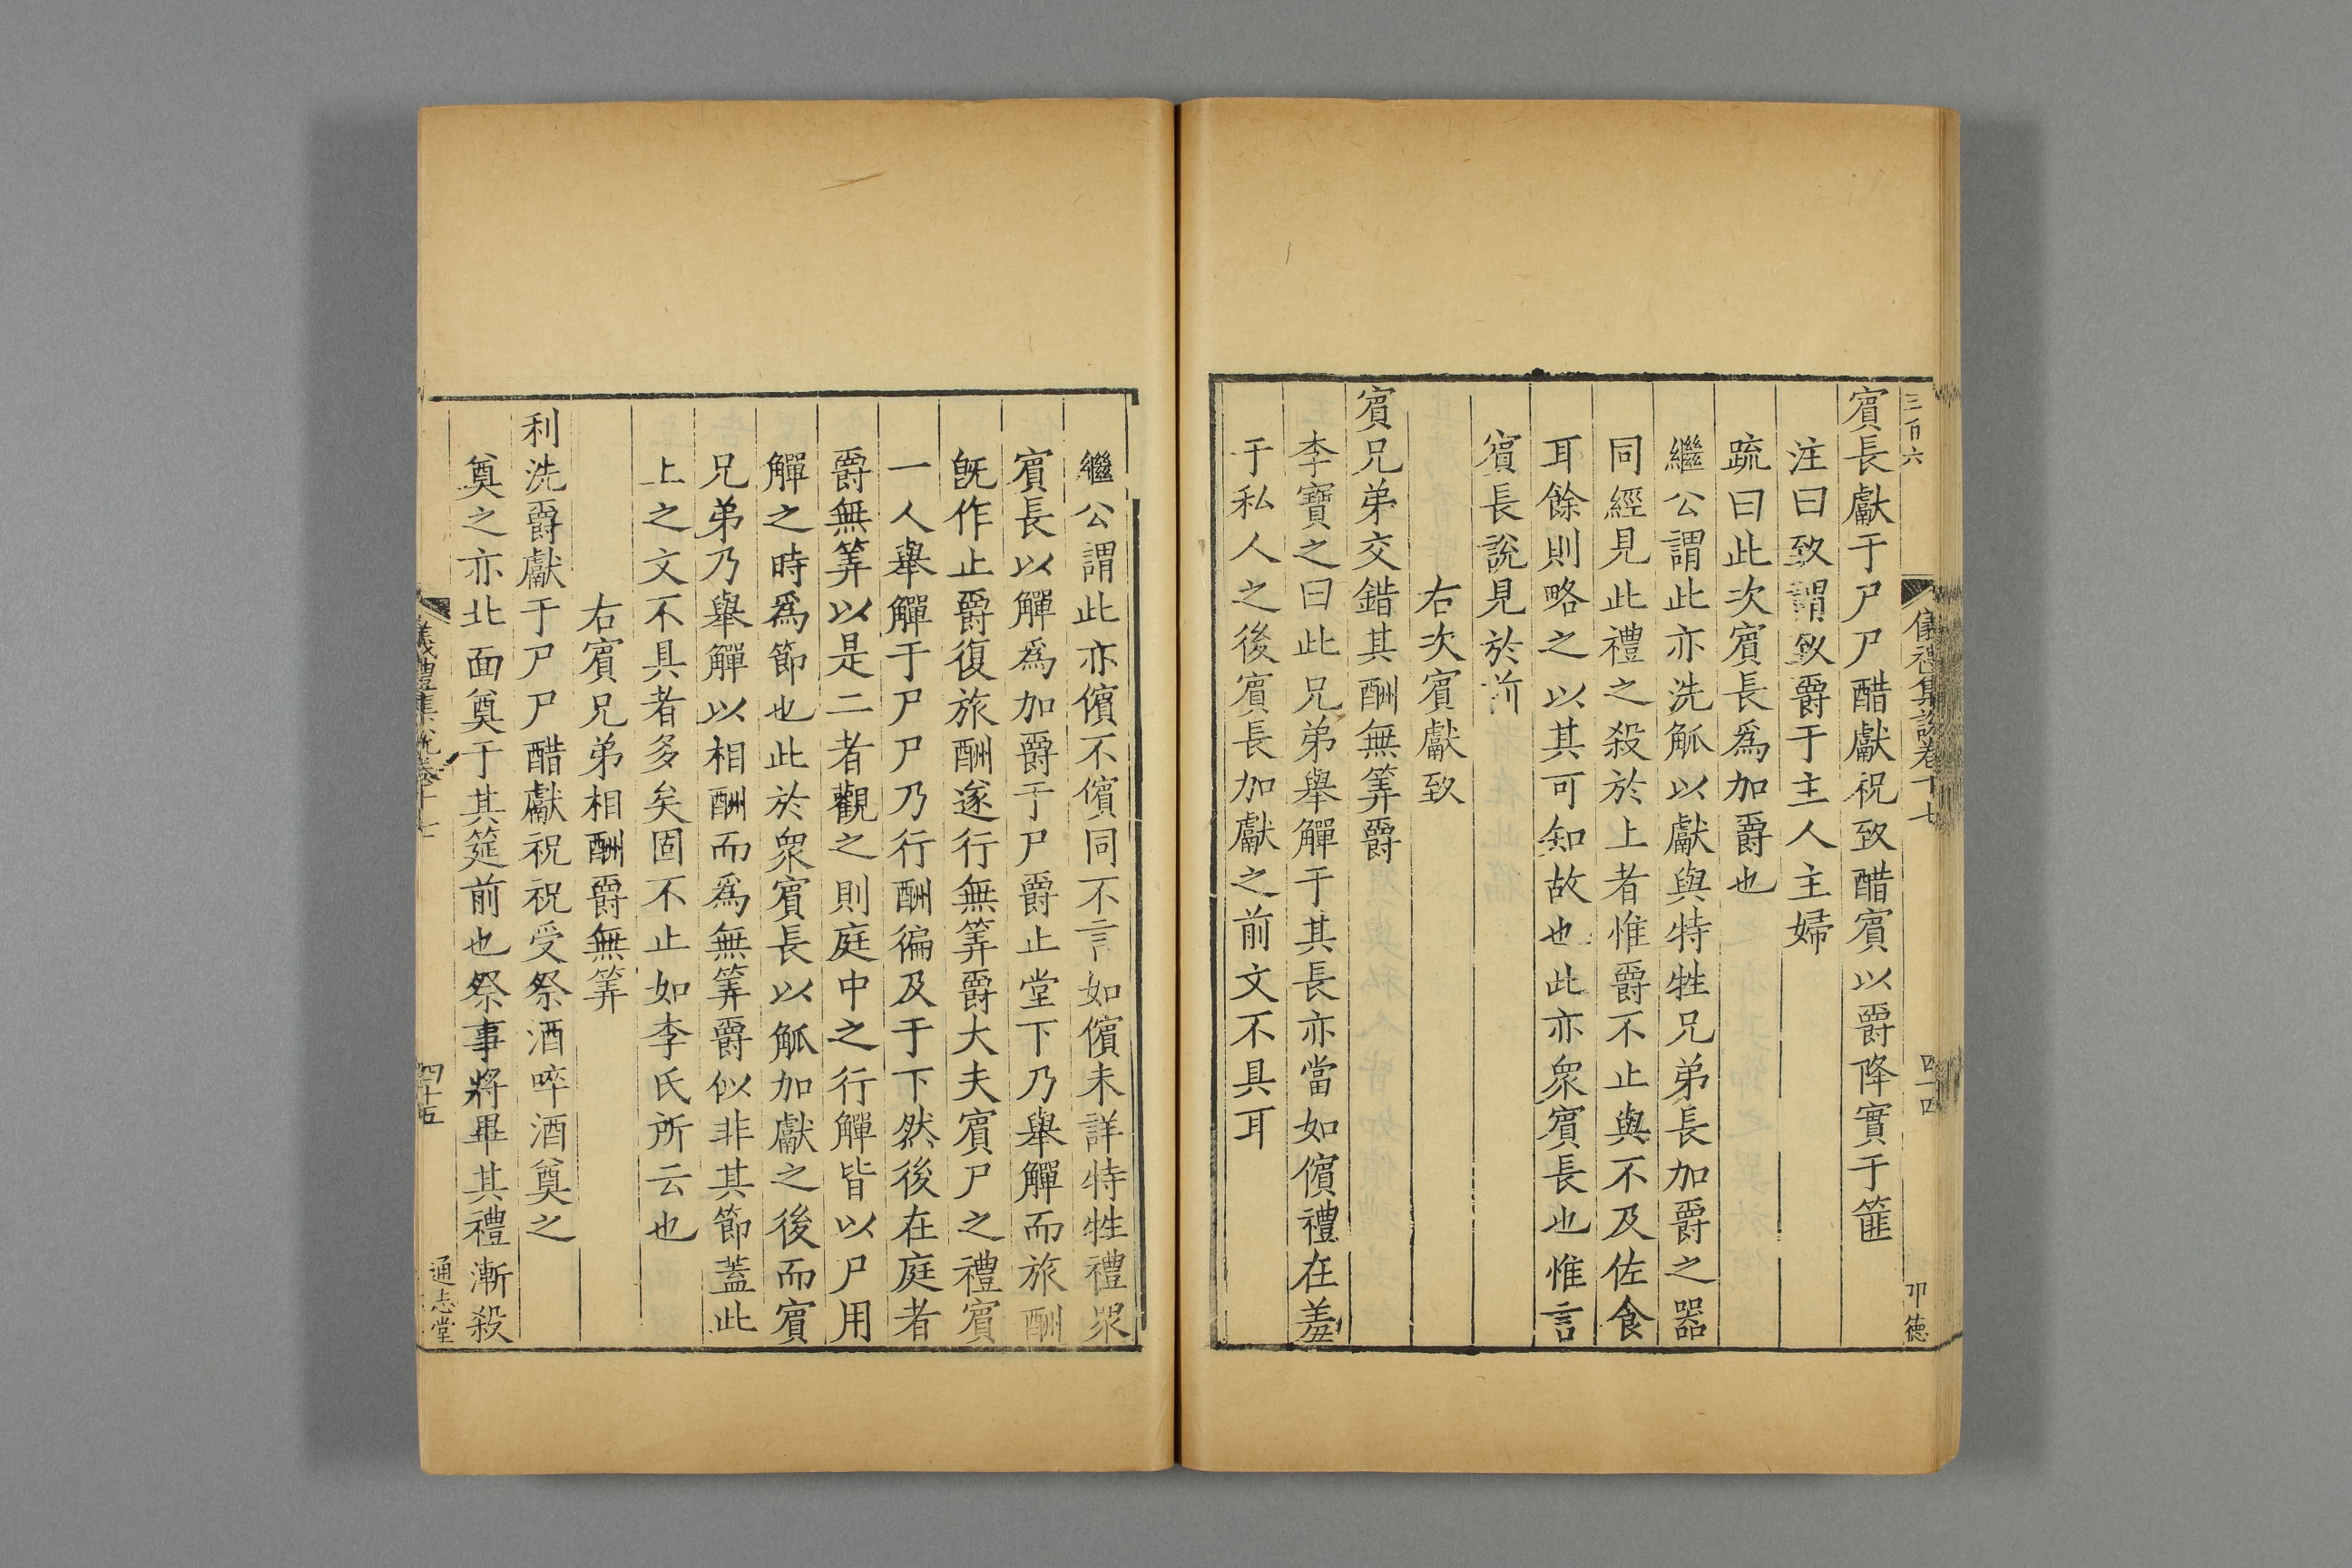 三百六
儀禮集說卷十七
四十四
卭德
賔長獻于尸尸醋獻祝致醋賔以爵降實于篚
注曰致謂致爵于主人主婦
疏曰此次賔長爲加爵也
繼公謂此亦洗觚以獻與特牲兄弟長加爵之器
同經見此禮之殺於上者惟爵不止與不及佐食
耳餘則略之以其可知故也此亦衆賔長也惟言
賔長說見於前
右次賔獻致
賔兄弟交錯其酬無筭爵
李寶之曰此兄弟舉觶于其長亦當如儐禮在羞
于私人之後賔長加獻之前文不具耳
繼公謂此亦儐不儐同不言如儐未詳特牲禮衆
賔長以觶爲加爵于尸爵止堂下乃舉觶而旅酬
旣作止爵復旅酬遂行無筭爵大夫賔尸之禮賔
一人舉觶于尸尸乃行酬徧及于下然後在庭者
爵無筭以是二者觀之則庭中之行觶皆以尸用
觶之時爲節也此於衆賔長以觚加獻之後而賔
兄弟乃舉觶以相酬而爲無筭爵似非其節蓋此
上之文不具者多矣固不止如李氏所云也
右賔兄弟相酬爵無筭
利洗爵獻于尸尸醋獻祝祝受祭酒啐酒奠之
奠之亦北面奠于其筵前也祭事將畢其禮漸殺
儀禮集說卷十七
四十五
通志堂